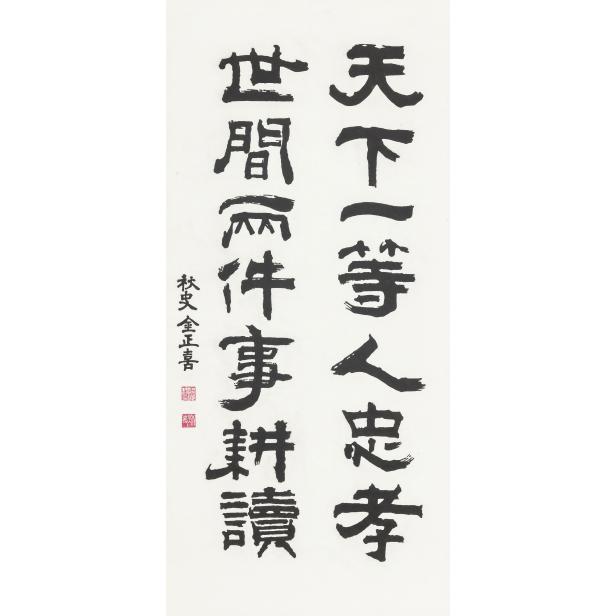 天下一等人忠孝
世間兩件事耕讀
秋史金正喜